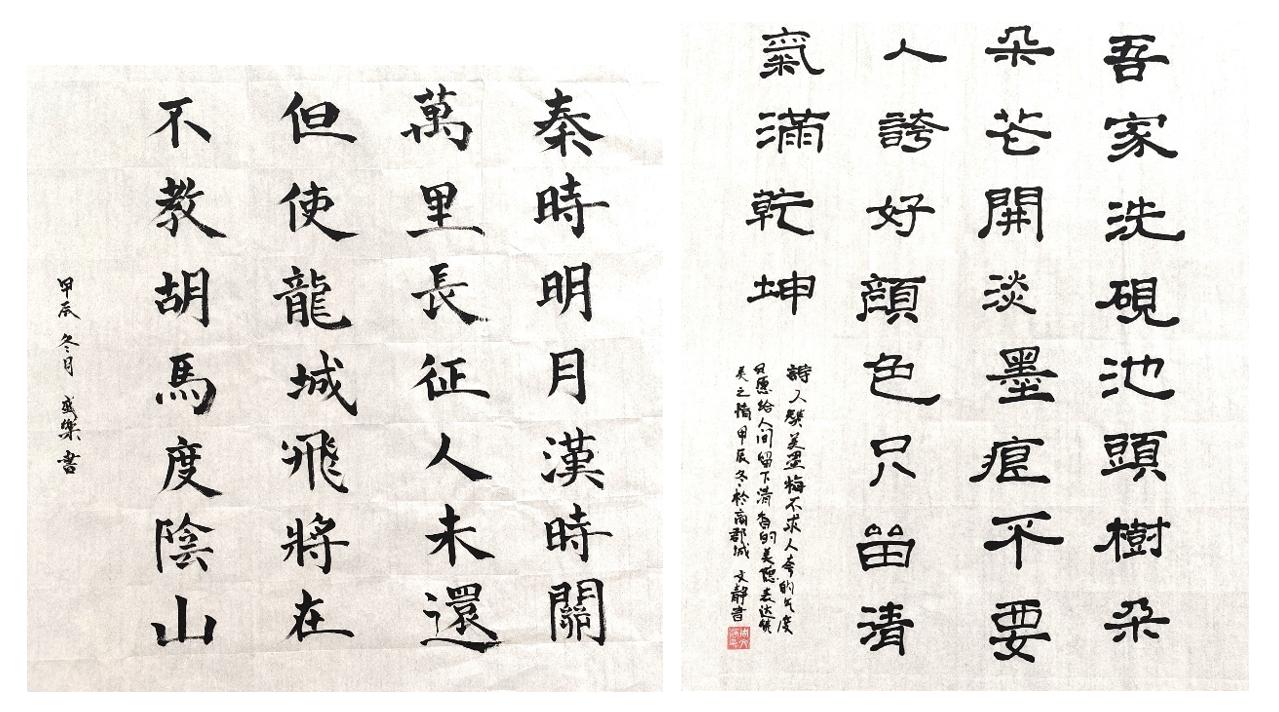 秦時明月漢時關
萬里長征人未還
但使龍城飛將在
不教胡馬度陰山
甲辰冬月 盛樂書
吾家洗硯池頭樹朵
朵花開淡墨痕不要
人誇好顏色只留清
氣滿乾坤
詩人贊美墨梅不求人夸的气度
只愿给人间留下清香的美德表达赞
美之情甲辰冬於城 文靜書